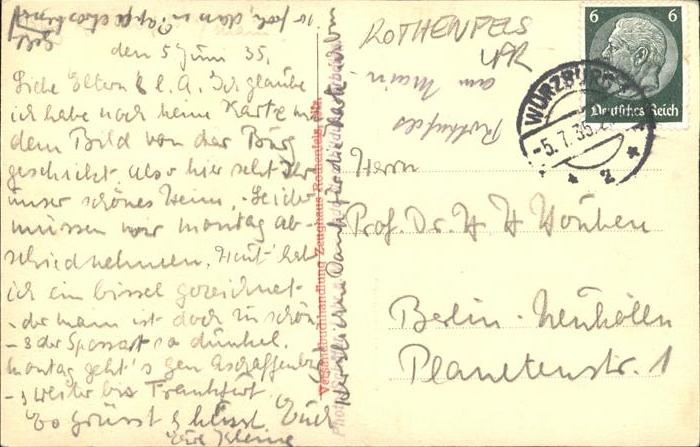 den 5 Juni 35.
Liebe Eltern & l. A. Ich glaube
ich habe noch keine Karte mit
dem Bild von der Burg
geschickt, also hier seht Ihr
unser schönes Heim, - Leider
müssen wir Montag ab-
schiednehmen. Heut' hab
ich ein bissel gezeichnet
- der Main ist doch zu schön
- & der Spessart so dunkel.
Montag geht's gen Aschaffenburg
- & weiter bis Frankfurt
Es grüsst & küsst Euch
Eure Kleine
Herzlichen Dank für die Karte
Versandbuchhandlung Zeughaus Rothenfels
ROTHENFELS
am Main -
Rothenfels
6 6
Deutsches Reich
WÜRZBURG
-5.7.35
* 2 *
Herrn
Prof. Dr. H. H. Houben
Berlin-Neukölln
Planetenstr. 1